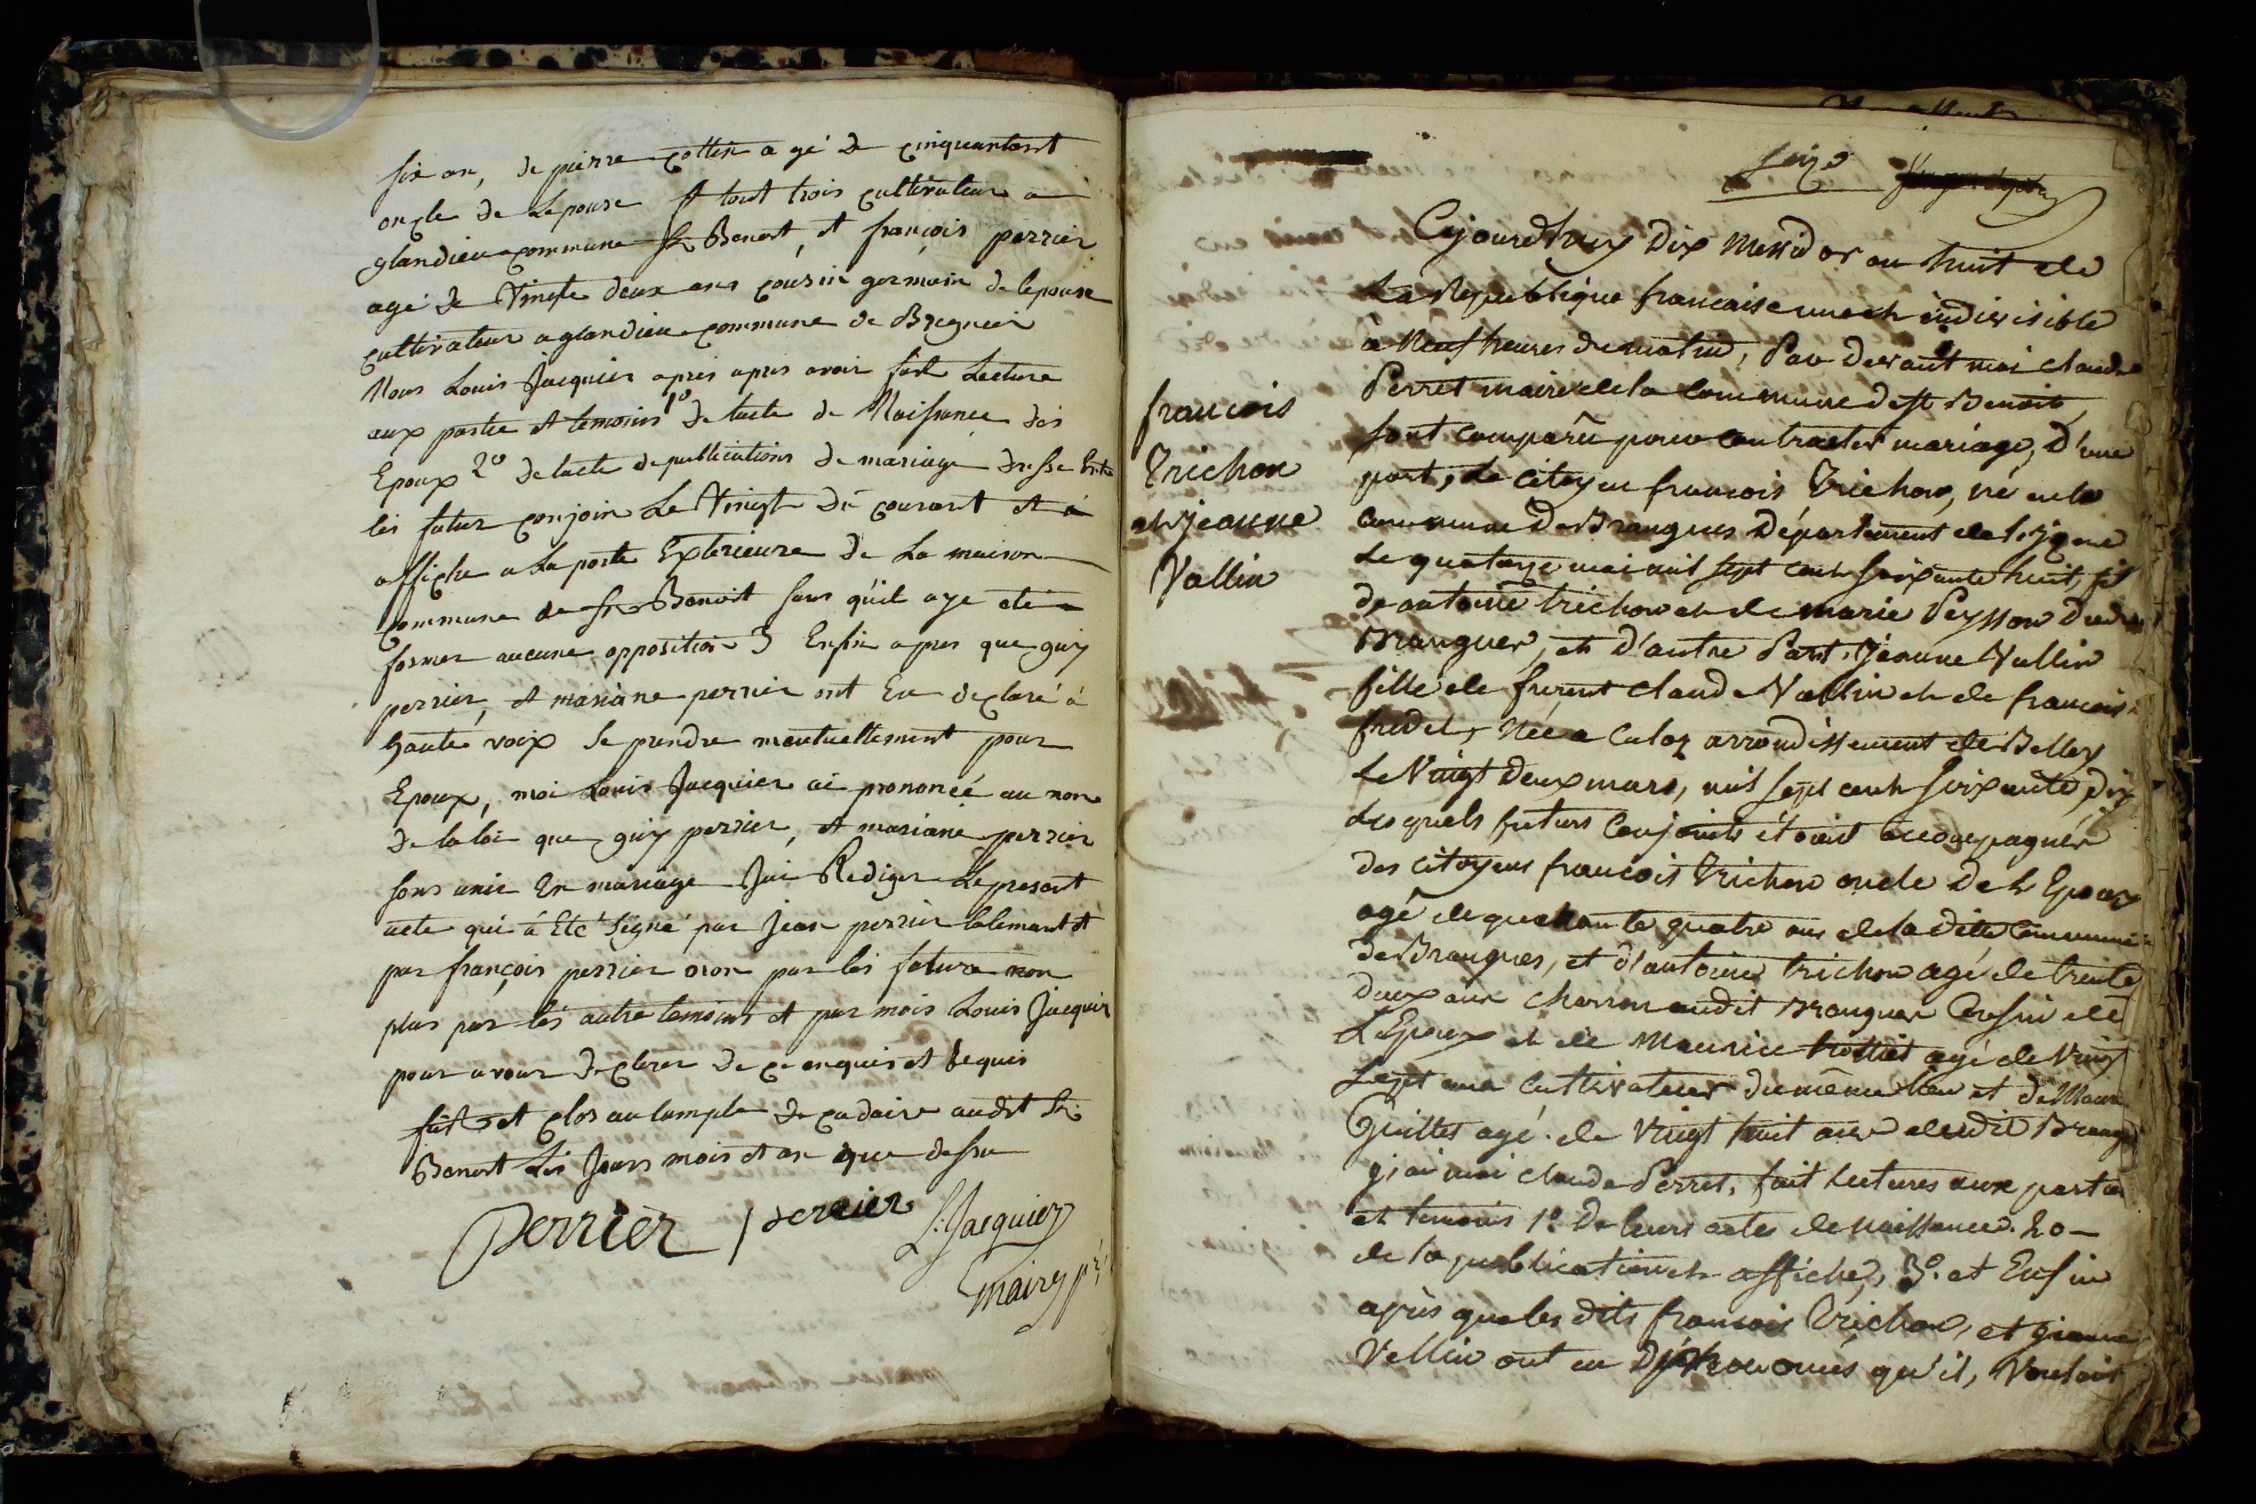 six an, de pierre cottin agé de cinquantent
oncle de Lepouse et tout trois cultivateur a
glandieu commune St Benoit, et françois perrier
agé de Vingte deux ans cousin germain de lepouse
cultivateur a glandieu commune de Bregnier
Nous Louis Jacquier apres apres avoir fait Lecture
aux partie et temoins 1º de lacte de Naissance des
Epoux 2º de lacte de publications de mariage dresse Entre
les futur conjoin Le Vingt du courant et a
affiche a La porte Exterieure de La maison
Commune de St Benoit sans qu'il aye ete
former aucune opposition 3 Enfin apres que guy
perrier, et mariane perrier ont Eu declaré à
haute voix se prendre mentuellement pour
Epoux, moi Louis Jacquier ai prononcé au non
de la loi que guy perrier, et mariane perrier
sons unie En mariage Jai Rediger Le present
acte qui à Eté signé par Jean perrier lalemant et
par françois perrier non par les futurs non
plus par les autre temoins et par mois Louis Jacquier
pour avoir declarer de ce enquis et Requis
fait et clos au temple de cadaire audit St
Benoit Les Jours mois et an que dessu
perrier perrier L. Jacquier
maire
seize
Cejourdhuy dix Messidor an huit de
La Republique francaise une et indivisible
à Neuf heures du matin, Par devant moi claude
Perret maire de la Commune de St Benoit,
sont comparû pour contracter mariage, D'une
part, Le citoyen francois Trichon, né en la
commune de Brangues Département de l'izere
Le quatorze mai mil sept cent soixante huit, fils
de antoine trichon et de marie Peysson dudit
Brangues, et d'autre Part, Jeanne Vallin
fille de furent claude Vallin et de francoise
fredet, Née a Culoz arrondissement de Belley
Le Vingt deux mars, mil sept cent soixante dix
Lesquels futurs Conjoints étoint accompagnés
des citoyens francois Trichon oncle de L'Epoux
agé de quarante quatre ans de la ditte Commune
de Brangues, et d'antoine trichon agé de trente
deux ans charron audit Brangues Cousin de
L'Epoux et de Maurice agé de Vingt
sept ans cultivateur du même lieu et de
agé de Vingt huit ans dudit Brang
j'ai moi claude Perret, fait Lectures aux parties
et temoins 1º. De leurs actes de naissance. 2o
de la publication et affiche, 3º. et Enfin
après que les dits francois Trichon, et jeanne
Vallin ont eu qu'il, Vouloit
francois
Trichon
et jeanne
Vallin